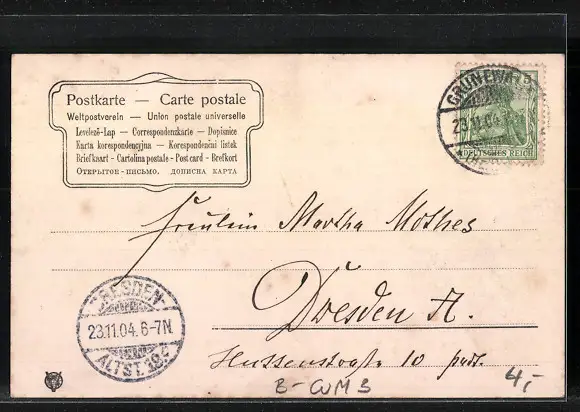 Postkarte — Carte postale
Weltpostverein — Union postale universelle
Levelező-Lap — Correspondenzkarte — Dopisnice
Karta korespondencyjna — Korespondenční lístek
Briefkaart - Cartolina postale - Post card - Brefkort
Открытое - письмо. дописна карта
GRUNEWALD
23.11.04
DEUTSCHES REICH
Fräulein Martha Mothes
Dresden A.
10
DRESDEN-
23.11.04.6-7N.
ALTST.
4,-